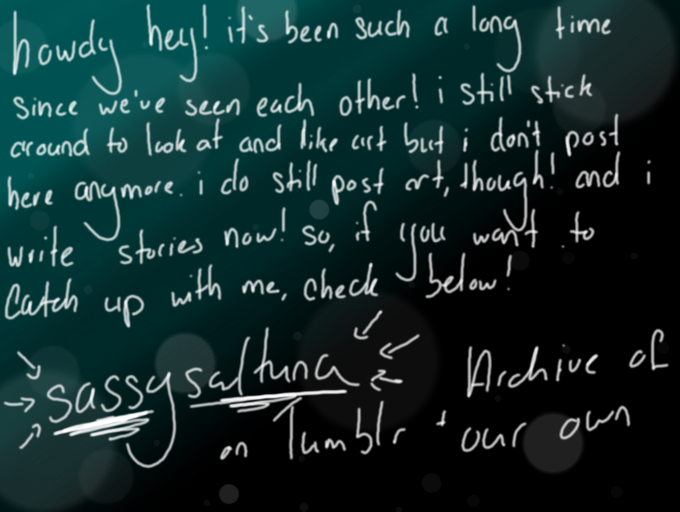 howdy hey! it's been such a long time
since we've seen each other! i still stick
around to look at and like art but i don't post
here anymore. i do still post art, though! and i
write stories now! so, if you want to
catch up with me, check below!
sassysaltuna
on Tumblr + Archive of
our own